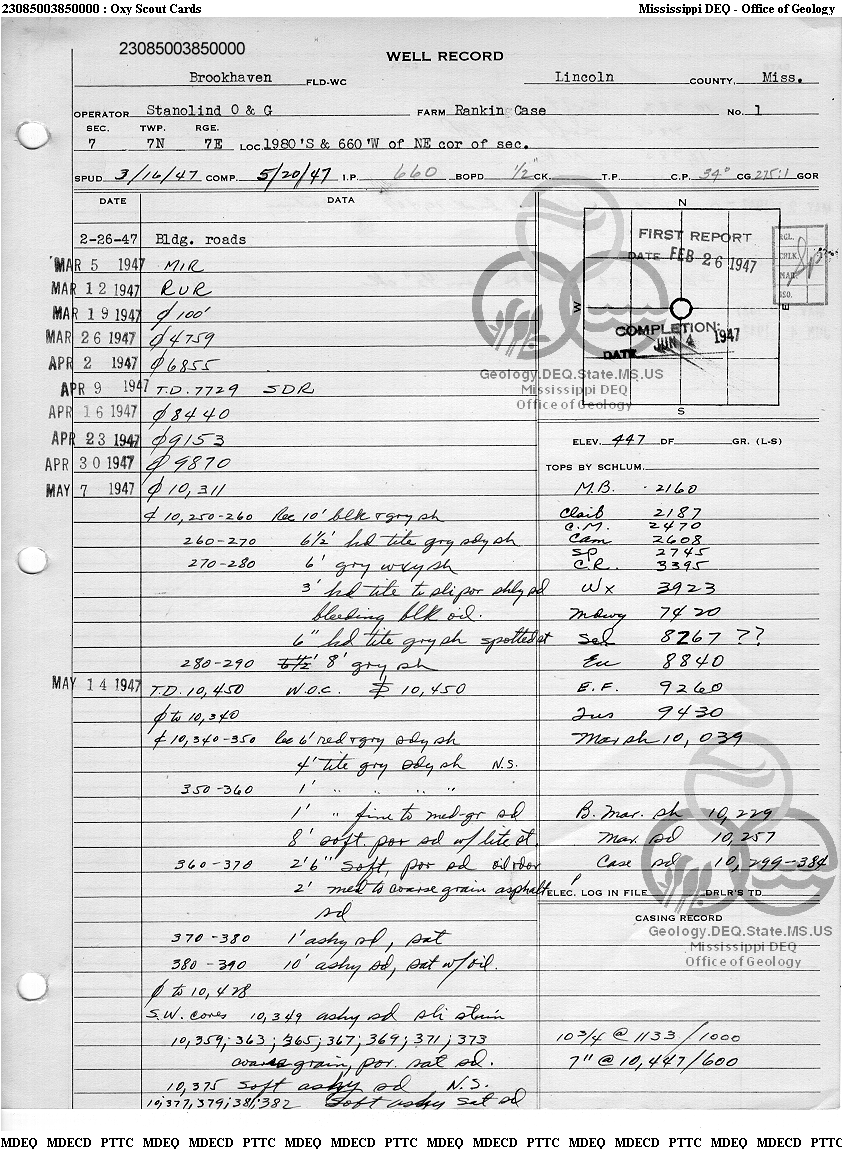 23085003850000 : Oxy Scout Cards Mississippi DEQ - Office of Geology
23085003850000
WELL RECORD
Brookhaven FLD-WC Lincoln COUNTY, Miss.
OPERATOR Stanolind O & G FARM Rankin Case No. 1
SEC. TWP. RGE.
7 7N 7E LOC. 1980'S & 660'W of NE cor of sec.
SPUD 3/16/47 COMP. 5/20/47 I.P. 660 BOPD 1/2" CK. T.P. C.P. 34° CG 275:1 GOR
DATE DATA
2-26-47 Bldg. roads
MAR 5 1947 MIR
MAR 12 1947 RUR
MAR 19 1947 ⌀ 100'
MAR 26 1947 ⌀ 4759
APR 2 1947 ⌀ 6855
APR 9 1947 T.D. 7729 SDR
APR 16 1947 ⌀ 8440
APR 23 1947 ⌀ 9153
APR 30 1947 ⌀ 9870
MAY 7 1947 ⌀ 10,311
₵ 10,250-260 Rec 10' blk & gry sh
260-270 6½' hd tite gry sdy sh
270-280 6' gry wxy sh
3' hd tite to sli por shly sd
bleeding blk oil.
6" hd tite gry sh spotted st
280-290 8' gry sh
MAY 14 1947 T.D. 10,450 W.O.C. 10,450
⌀ to 10,340
₵ 10,340-350 Rec 6' red & gry sdy sh
4' tite gry sdy sh N.S.
350-360 1' " " " "
1' " fine to med-gr sd
8' soft por sd w/ lite st.
360-370 2'6" soft, por sd oil odor
2' med to coarse grain asphalt
sd
370-380 1' ashy sd, sat
380-390 10' ashy sd, sat w/ oil.
⌀ to 10,428
S.W. cores 10,349 ashy sd sli stain
10,359; 363; 365; 367; 369; 371; 373
coarse grain, por. sat sd.
10,375 Soft ashy sd N.S.
10,377, 379, 381, 382 Soft ashy sat sd
N
FIRST REPORT
DATE FEB 26 1947
W E
COMPLETION:
DATE JUN 4 1947
S
Geology.DEQ.State.MS.US
Mississippi DEQ
Office of Geology
ELEV. 447 DF GR. (L-S)
TOPS BY SCHLUM.
M.B. 2160
Claib 2187
C.M. 2470
Cam 2608
SP 2745
C.R. 3395
Wx 3923
Mdwy 7420
Sel 8267 ??
Eu 8840
E.F. 9260
Tus 9430
Mar sh 10,039
B. Mar. sh 10,229
Mar. sd 10,257
Case sd 10,299-384
ELEC. LOG IN FILE DRLR'S TD
CASING RECORD
Geology.DEQ.State.MS.US
Mississippi DEQ
Office of Geology
10 3/4 @ 1133/1000
7" @ 10,447/600
MDEQ MDECD PTTC MDEQ MDECD PTTC MDEQ MDECD PTTC MDEQ MDECD PTTC MDEQ MDECD PTTC MDEQ MDECD PTTC